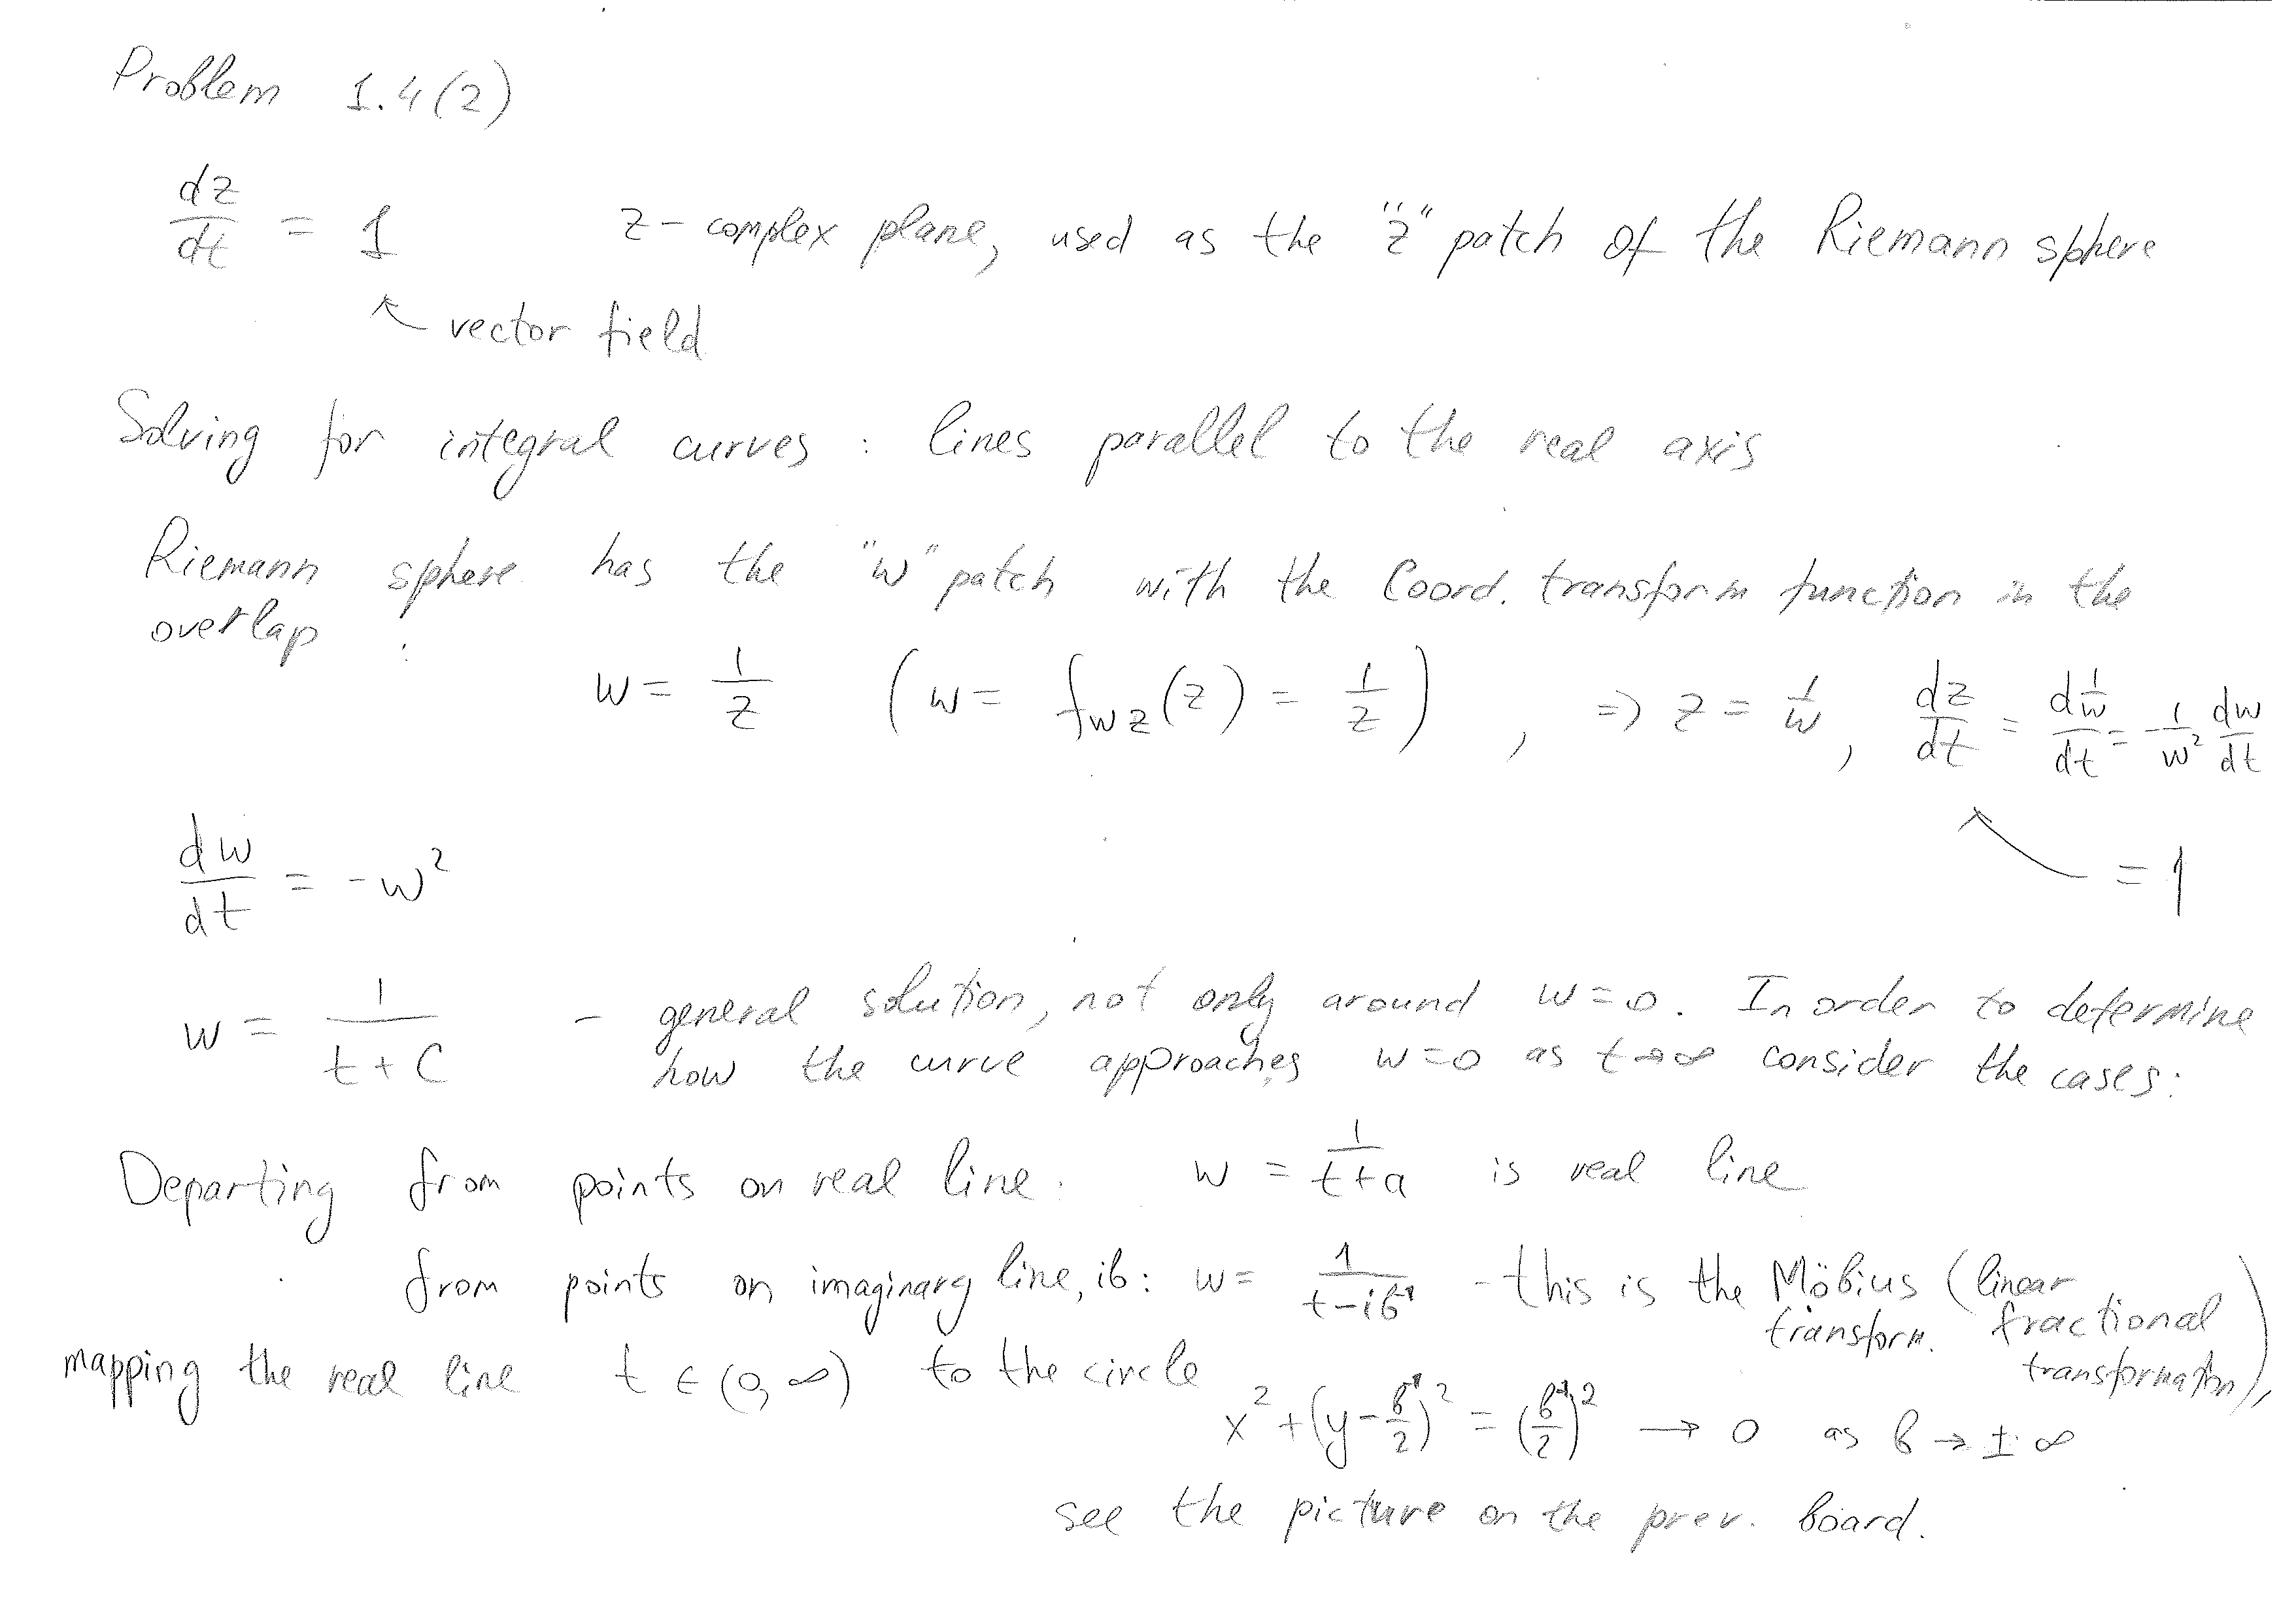 Problem 1.4(2)
dz/dt = 1 z - complex plane, used as the "z" patch of the Riemann sphere
↖ vector field
Solving for integral curves : lines parallel to the real axis
Riemann sphere has the "w" patch with the Coord. transform function in the
overlap :
w = 1/z (w = f_wz(z) = 1/z) , => z = 1/w , dz/dt = d(1/w)/dt = -1/w² dw/dt
dw/dt = -w² ↖ = 1
w = 1/(t + C) - general solution, not only around w=0. In order to determine
how the curve approaches w=0 as t→∞ consider the cases:
Departing from points on real line: w = 1/(t+a) is real line
from points on imaginary line, ib: w = 1/(t-ib⁻¹) - this is the Möbius (linear
transform. fractional
mapping the real line t ∈ (0, ∞) to the circle transformation),
x² + (y - b⁻¹/2)² = (b⁻¹/2)² → 0 as b → ± ∞
see the picture on the prev. board.